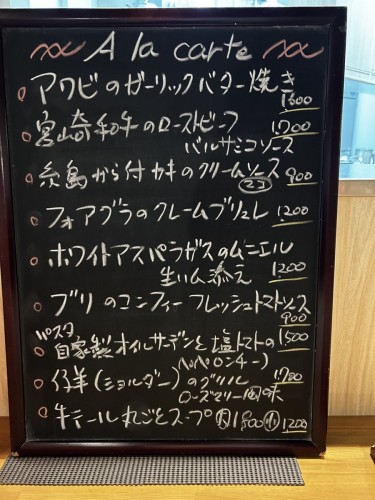 A la carte
アワビのガーリックバター焼き
1600
宮崎和牛のローストビーフ 1.700
バルサミコソース
糸島から付カキのクリームソース 900
2コ
フォアグラのクレームブリュレ 1.200
ホワイトアスパラガスのムニエル
生ハム添え 1200
ブリのコンフィーフレッシュトマトソース
900
パスタ
自家製オイルサーデンと塩トマトの 1500
ペペロンチーノ
仔羊(ショルダー)のグリル 1.700
ローズマリー風味
牛テール丸ごとスープ 大1800 小1200